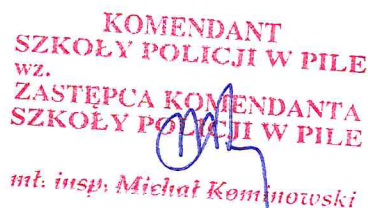 KOMENDANT
SZKOŁY POLICJI W PILE
wz.
ZASTĘPCA KOMENDANTA
SZKOŁY POLICJI W PILE
mł. insp. Michał Kominowski